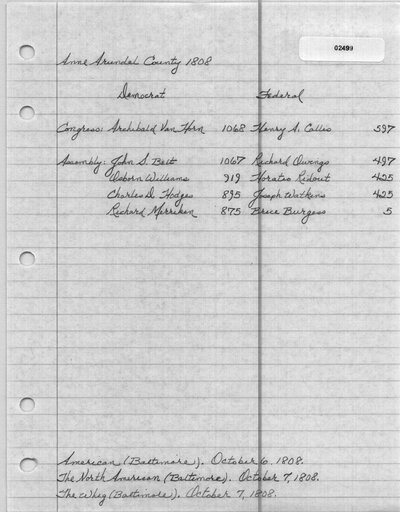 02499
Anne Arundel County 1808
Democrat Federal
Congress: Archibald Van Horn 1068 Henry A. Callis 597
Assembly: John S. Belt 1067 Richard Owings 497
Osborn Williams 919 Horatio Ridout 425
Charles D. Hodges 895 Joseph Watkins 425
Richard Merriken 875 Brice Burgess 5
American (Baltimore). October 6, 1808.
The North American (Baltimore). October 7, 1808.
The Whig (Baltimore). October 7, 1808.